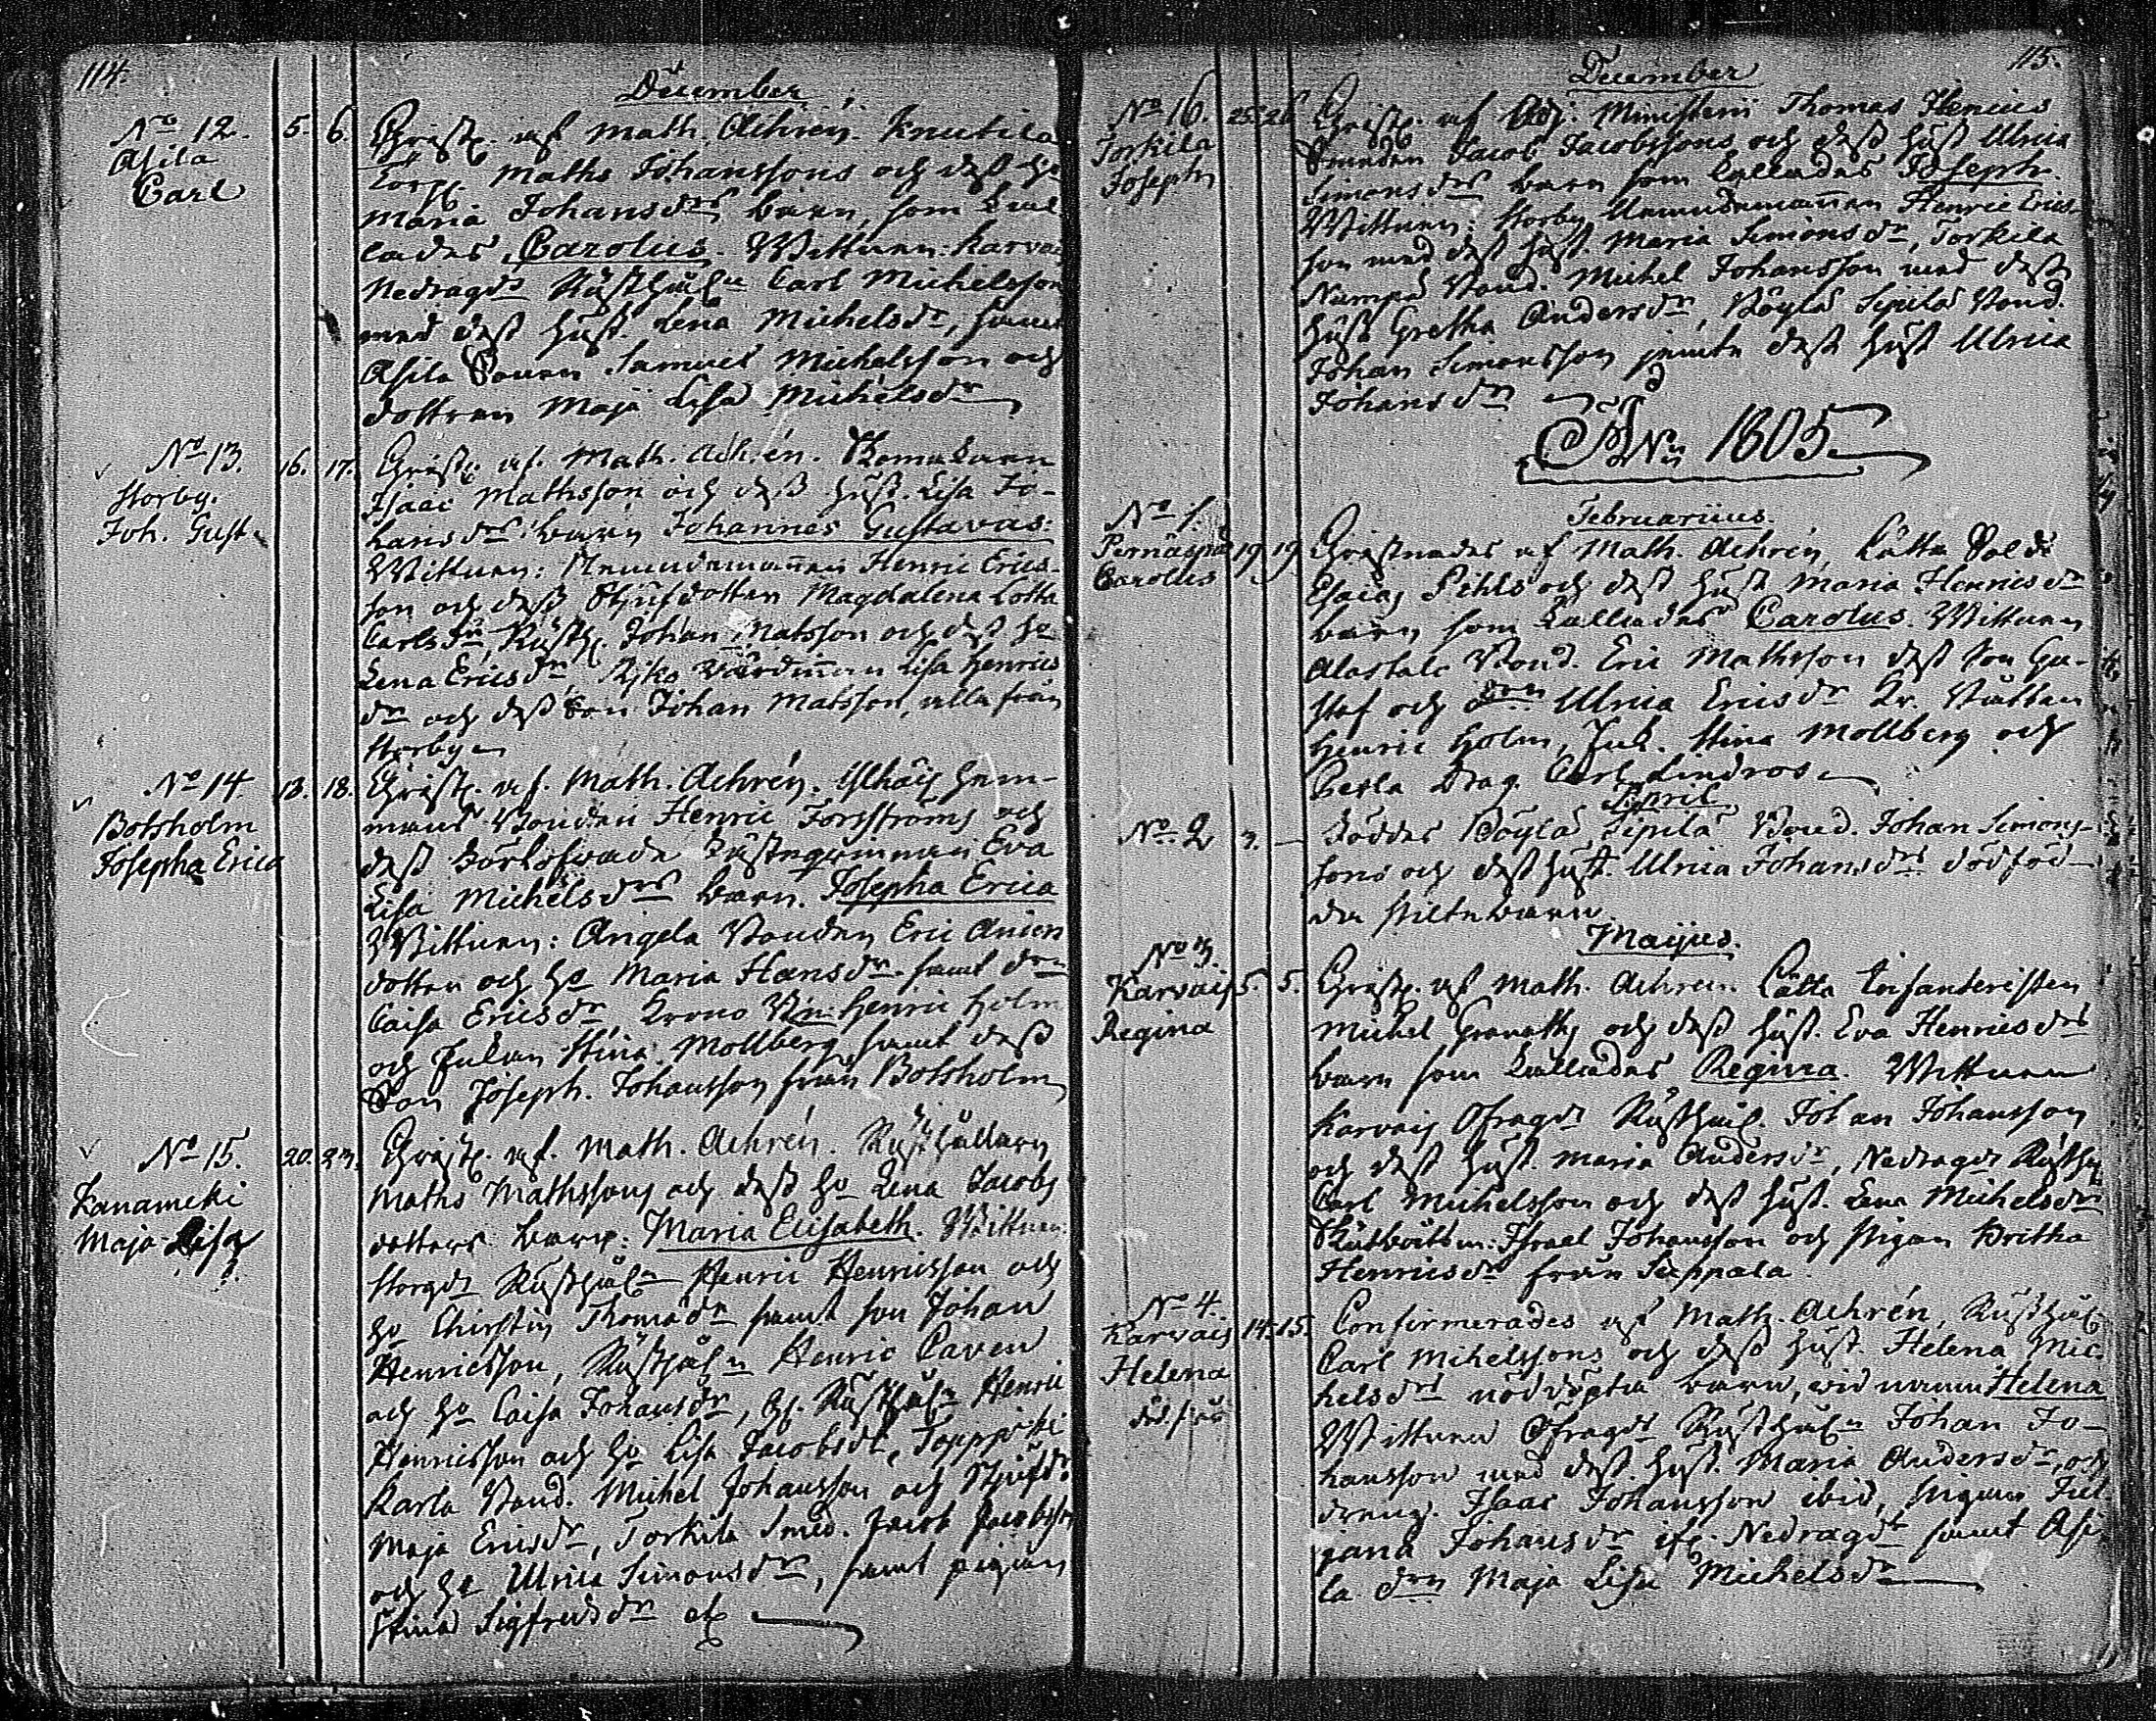 114.
December
No 12.
Asila
Carl
5. 6.
Christ. af Math. Achrén. Knutila
Torp. Maths Johanssons och dess ho
Maria Johansdrs barn, som kal-
lades Carolus. Wittnen: Karva
Nedragds Rusthåln Carl Michelsson
med dess hust. Lena Michelsdr, samt
Asila Sonen Samuel Michelsson och
dottren Maja Lisa Michelsdr
No 13.
Storby.
Joh. Gust.
16. 17.
Christ. af Math. Achrén.
Isaac Mathsson och dess hust. Lisa Jo-
hansdrs barn Johannes Gustavus:
Wittnen: Nemndemannen Henric Erics-
son och dess Stjufdotter Magdalena Lotta
Carlsdr, Rusth. Johan Matsson och dess ho
Lena Ericsdr, Lisa Henrics
dr och dess son Johan Matsson, alla från
Storby
No 14
Botsholm
Josepha Erica
13. 18.
Christ. af Math. Achrén. hem-
mans Bonden Henric Forsströms och
dess qvinnan Eva
Lisa Michelsdrs barn. Josepha Erica
Wittnen: Angela Bonden Eric
dotter och ho Maria Hansdr samt drn
Caisa Ericsdr Henric Holm
och Enkan Stina Mollberg samt dess
Son Joseph Johansson från Botsholm
No 15.
Kanameki
Maja Lisa
20. 23.
Christ. af Math. Achrén. Rusthållarn
Maths Mathssons och dess ho Lena Jacobs
dotters barn: Maria Elisabeth. Wittnen:
Storgds Rusthåln Henric Henricsson och
ho Christin Thomadr samt son Johan
Henricsson, Rusthåln Henric Caven
och ho Caisa Johansdr, Rusthåln Henric
Henricsson och ho Lisa Jacobsdr,
Karla Bond. Michel Johansson och Stjufdr
Maja Ericsdr, Torkila Smed. Jacob Jacobsson
och ho Ulrica Simonsdr, samt pigan
Stina Sigfredsdr
115.
December
No 16.
Torkila
Joseph
25. 26
Christ. af Adj. Ministerii Thomas Henius
Smeden Jacob Jacobssons och dess hust Ulrica
Simonsdrs barn som kallades Joseph.
Wittnen: Storby Nemndemannen Henric Erics-
son med dess hust. Maria Simonsdr, Torkila
Numpä Bond. Michel Johansson med dess
hust Gretha Andersdr, Böylä Sipilä Bond.
Johan Simonsson jemte dess hust Ulrica
Johansdr
1805
Februarius.
No 1.
Pernäspä
Carolus
19 19
Christnades af Math. Achrén, Lätta Sold.
Esaias Pihls och dess hust Maria Henricsdr
barn som kallades Carolus. Wittnen
Alastalo Bond. Eric Mathsson dess son Gu-
staf och drn Ulrica Ericsdr
Henric Holm, Enk. Stina Mollberg och
Drag. Carl Lindros
April
No 2
3. —
Föddes Böylä Sipilä Bond. Johan Simons-
sons och dess hust. Ulrica Johansdrs dödföd-
da piltebarn
Maijus.
No 3.
Karvais
Regina
5. 5.
Christ. af Math. Achren. Lätta Infanteristen
Michel Granaths och dess hust. Eva Henricsdrs
barn som kallades Regina. Wittnen
Karvais Ofragds Rusthål. Johan Johansson
och dess hust. Maria Andersdr, Nedragds Rusth.
Carl Michelsson och dess hust. Lena Michelsdr
Israel Johansson och pigan Britha
Henricsdr från Suppala
No 4.
Karvais
Helena
14. 15.
Confirmerades af Math. Achrén, Rusthål
Carl Mihelssons och dess hust. Helena Mic-
helsdrs nöddöpta barn, vid namn Helena
Wittnen Ofragds Rusthåln Johan Jo-
hansson med dess hust. Maria Andersdr, och
dreng. Isaac Johansson ibid, pigan Jul
jana Johansdr Nedragdt samt Asi-
la drn Maja Lisa Michelsdr